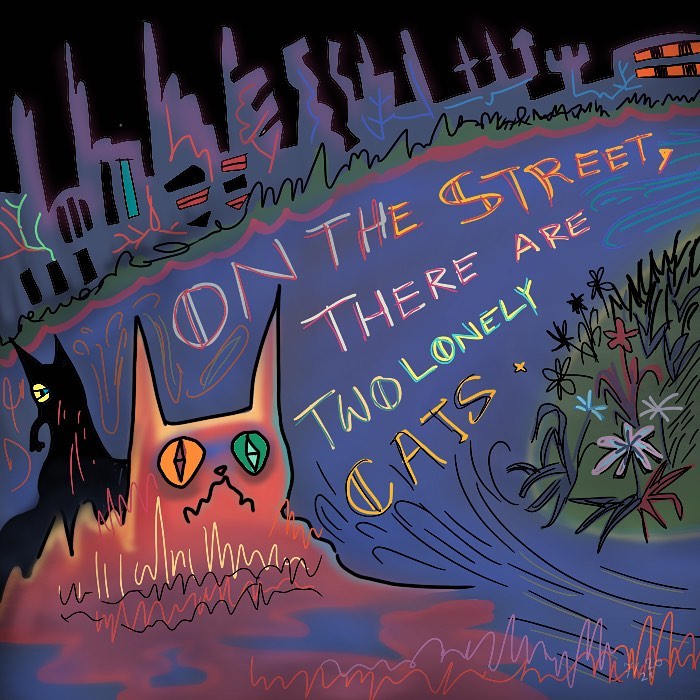 ON THE STREET,
THERE ARE
TWO LONELY
CATS.